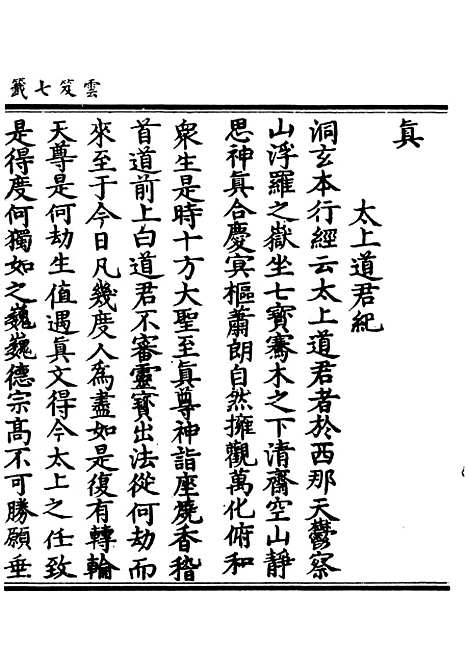 雲笈七籤
真
太上道君紀
洞玄本行經云太上道君者於西那天鬱察
山浮羅之嶽坐七寳騫木之下清齋空山靜
思神真合慶冥樞蕭朗自然擁觀萬化俯和
衆生是時十方大聖至真尊神詣座燒香稽
首道前上白道君不審靈寳出法從何劫而
來至于今日凡幾度人爲盡如是復有轉輪
天尊是何劫生值遇真文得今太上之任致
是得度何獨如之巍巍德宗髙不可勝願垂